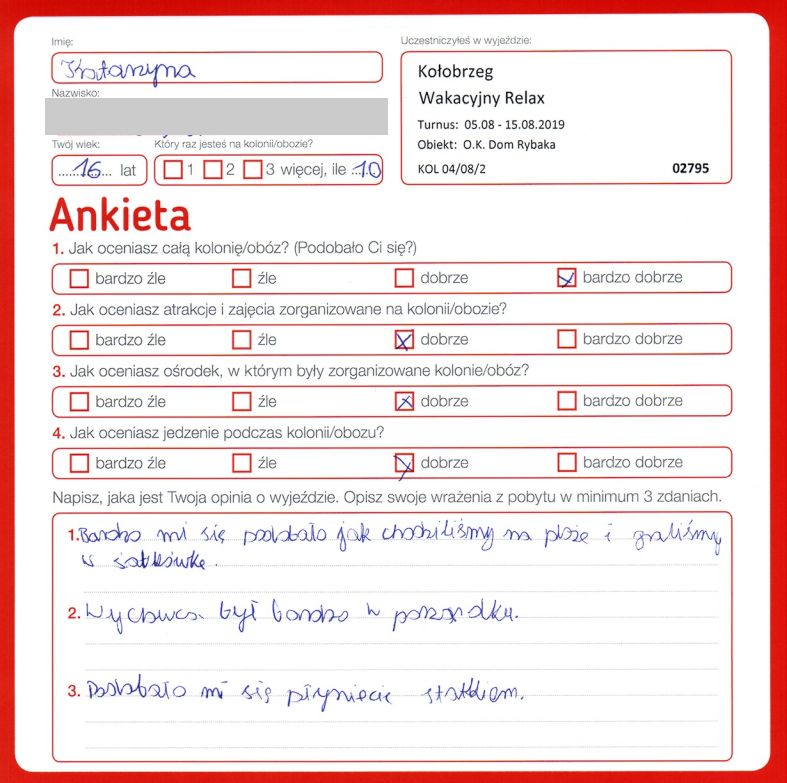 Imię:
Katarzyna
Nazwisko:
Twój wiek:
Który raz jesteś na kolonii/obozie?
.......16... lat
1 2 3 więcej, ile ...10
Uczestniczyłeś w wyjeździe:
Kołobrzeg
Wakacyjny Relax
Turnus: 05.08 - 15.08.2019
Obiekt: O.K. Dom Rybaka
KOL 04/08/2 02795
Ankieta
1. Jak oceniasz całą kolonię/obóz? (Podobało Ci się?)
bardzo źle źle dobrze bardzo dobrze
2. Jak oceniasz atrakcje i zajęcia zorganizowane na kolonii/obozie?
bardzo źle źle dobrze bardzo dobrze
3. Jak oceniasz ośrodek, w którym były zorganizowane kolonie/obóz?
bardzo źle źle dobrze bardzo dobrze
4. Jak oceniasz jedzenie podczas kolonii/obozu?
bardzo źle źle dobrze bardzo dobrze
Napisz, jaka jest Twoja opinia o wyjeździe. Opisz swoje wrażenia z pobytu w minimum 3 zdaniach.
1. Bardzo mi się podobało jak chodziliśmy na plaże i graliśmy
w siatkówkę.
2. Wychowca był bardzo w porządku.
3. Podobało mi się płynięcie statkiem.